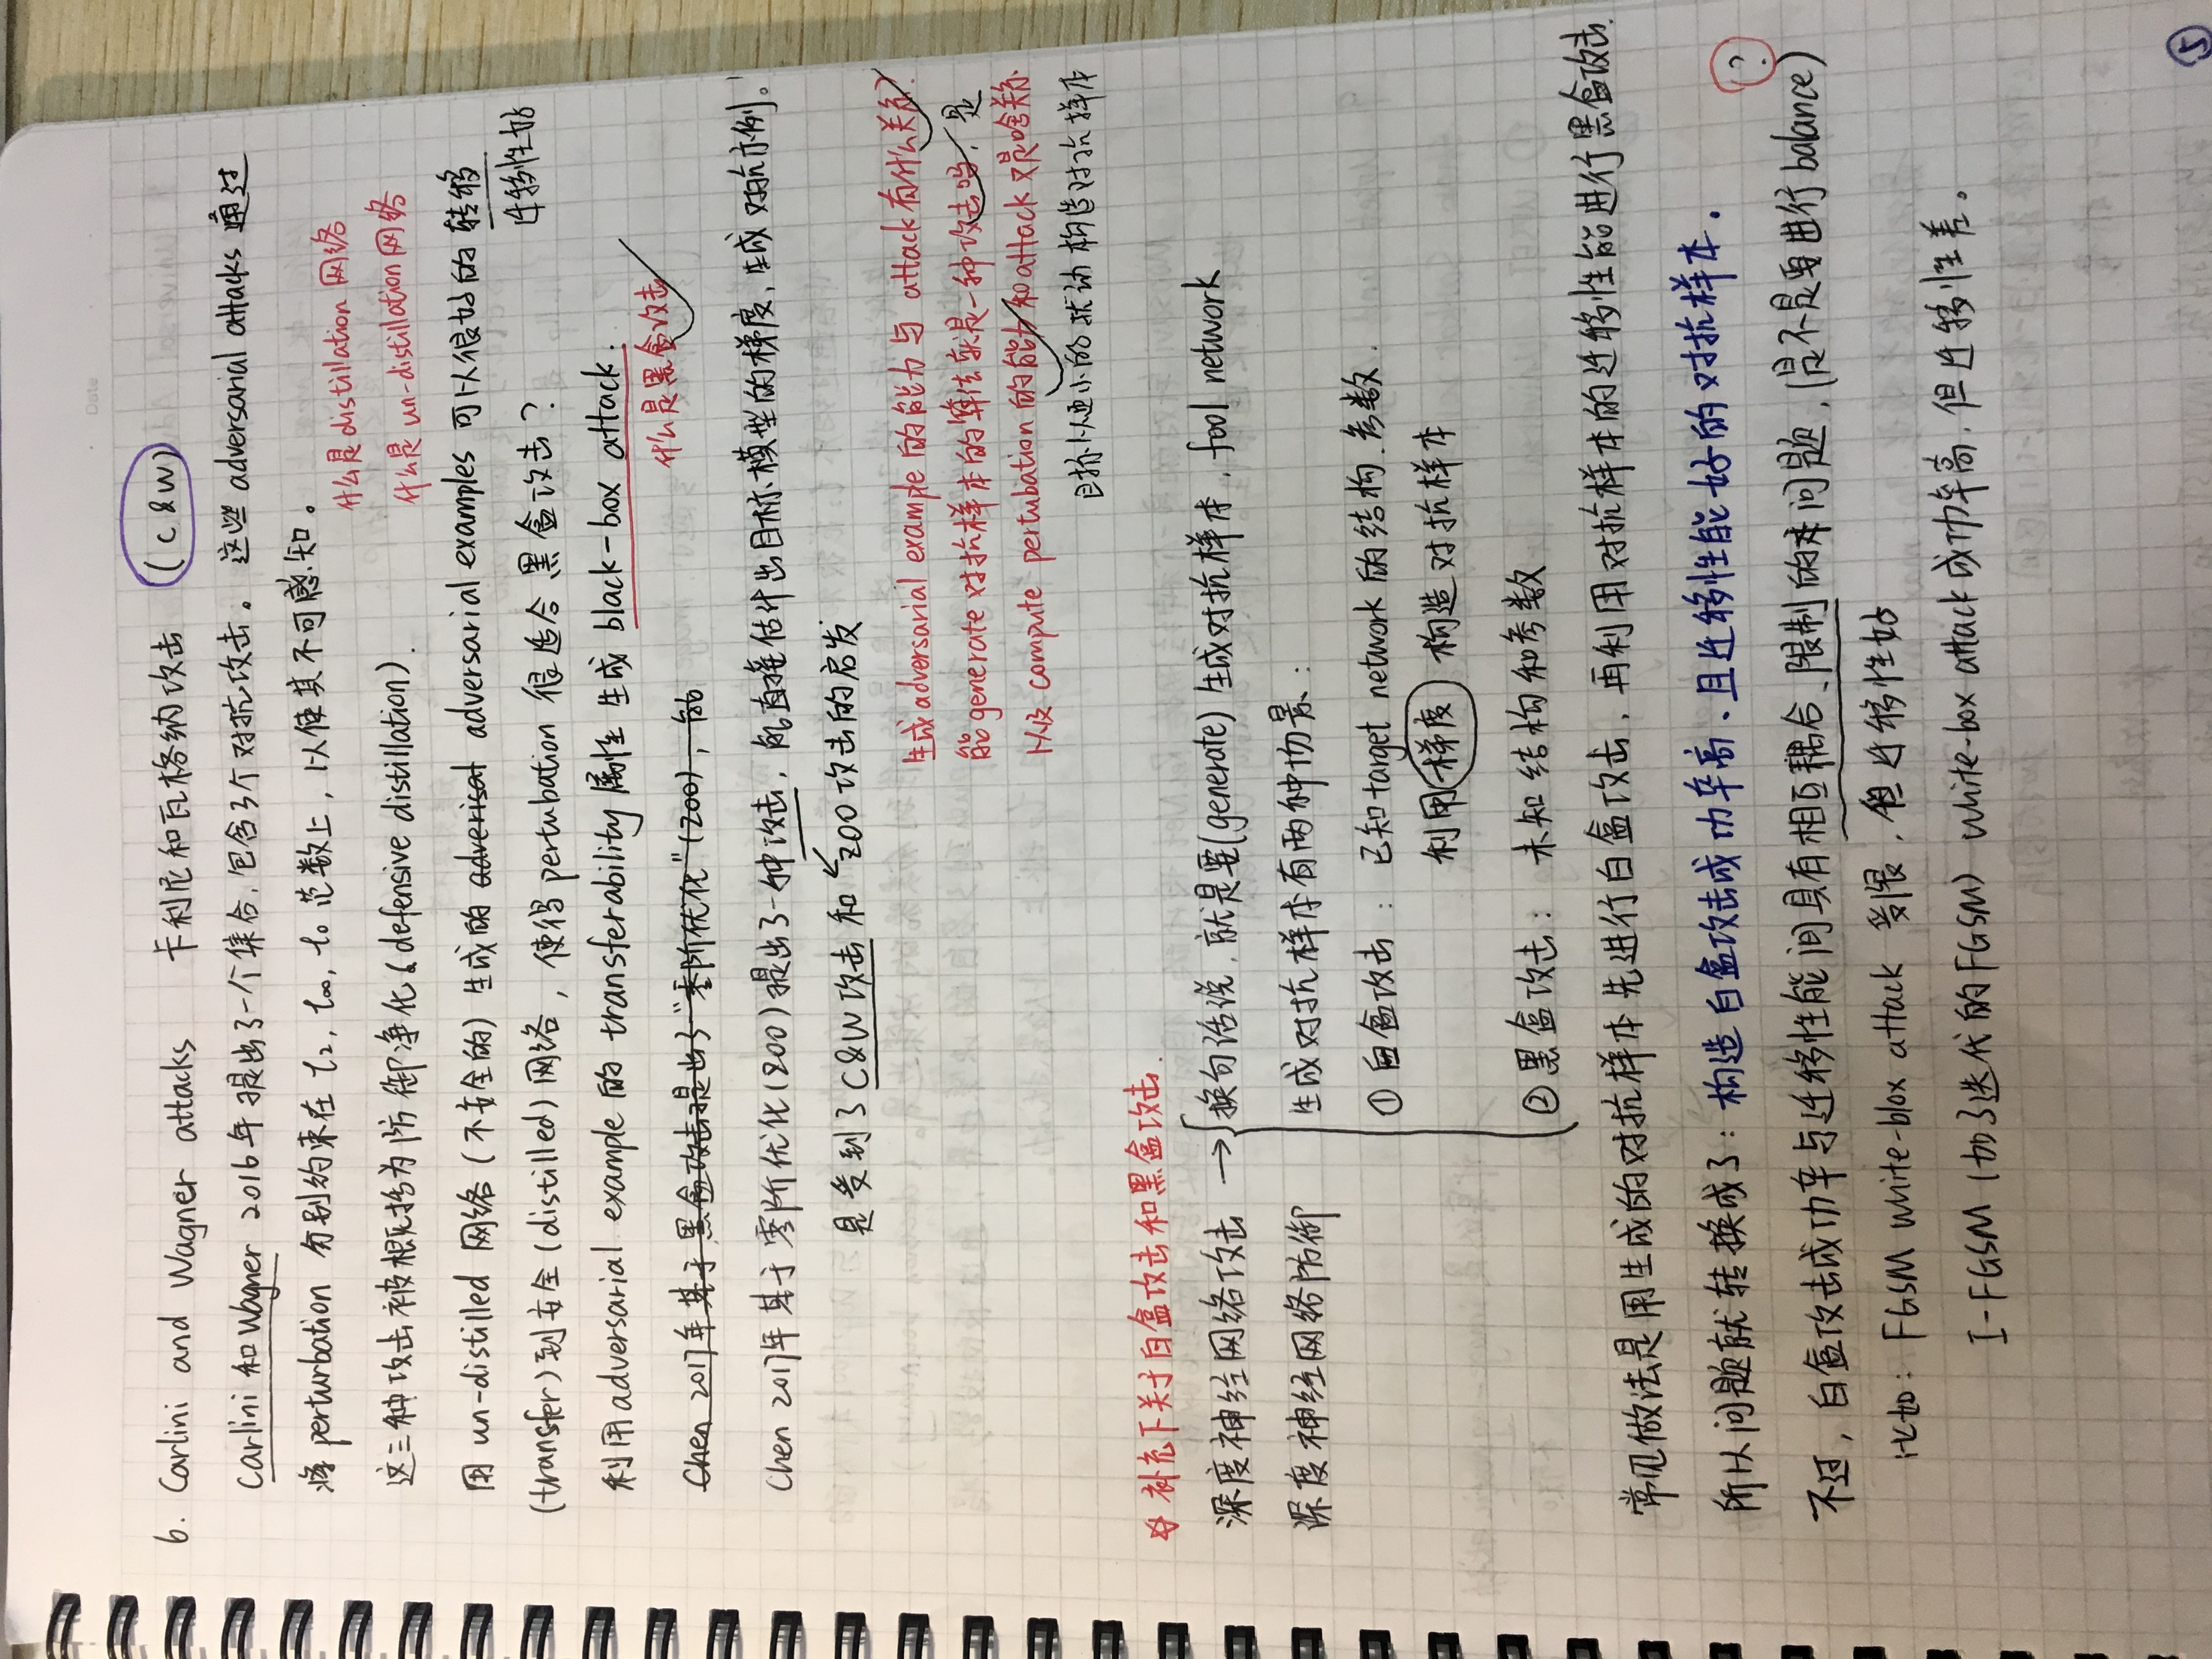 Date
6. Carlini and Wagner attacks 卡利尼和瓦格纳攻击 (C&W)
Carlini 和 Wagner 2016年提出了一个集合,包含3个对抗攻击。这些 adversarial attacks 通过
将 perturbation 分别约束在 l2, l∞, l0 范数上,以使其不可感知。
什么是distillation 网络
什么是 un-distillation网络
这三种攻击被概括为防御净化(defensive distillation).
用 un-distilled 网络(不安全的)生成的 adverisal adversarial examples 可以很好的转移
迁移性好
(transfer)到安全(distilled)网络,使得 pertubation 很适合黑盒攻击?
利用 adversarial example 的 transferability 属性生成 black-box attack.
什么是黑盒攻击
Chen 2017年基于黑盒攻击提出了"零阶优化"(zoo),能
Chen 2017年基于零阶优化(zoo)提出了一种攻击,能直接估计出目标模型的梯度,生成对抗示例。
是受到了C&W攻击和zoo攻击的启发
生成 adversarial example 的能力与 attack 有什么关系.
能generate对抗样本的算法就是一种攻击吗, 是
以及 compute pertubation 的能力和attack又是啥关系
由扰小的扰动构造对抗样本
☆ 补充下关于白盒攻击和黑盒攻击.
深度神经网络攻击 → 换句话说,就是要(generate)生成对抗样本, fool network
深度神经网络防御 生成对抗样本有两种场景:
① 白盒攻击: 已知target network的结构.参数.
利用梯度 构造对抗样本
② 黑盒攻击: 未知结构和参数
常见做法是用生成的对抗样本先进行白盒攻击,再利用对抗样本的迁移性能进行黑盒攻击.
所以问题就转换成了:构造白盒攻击成功率高.且迁移性能好的对抗样本.
不过,白盒攻击成功率与迁移性能间具有相互耦合、限制的难问题.(是不是要进行balance) (?)
比如: FGSM white-blox attack 受限,但迁移性好
I-FGSM (加了迭代的FGSM) white-box attack成功率高,但迁移性差。
⑤